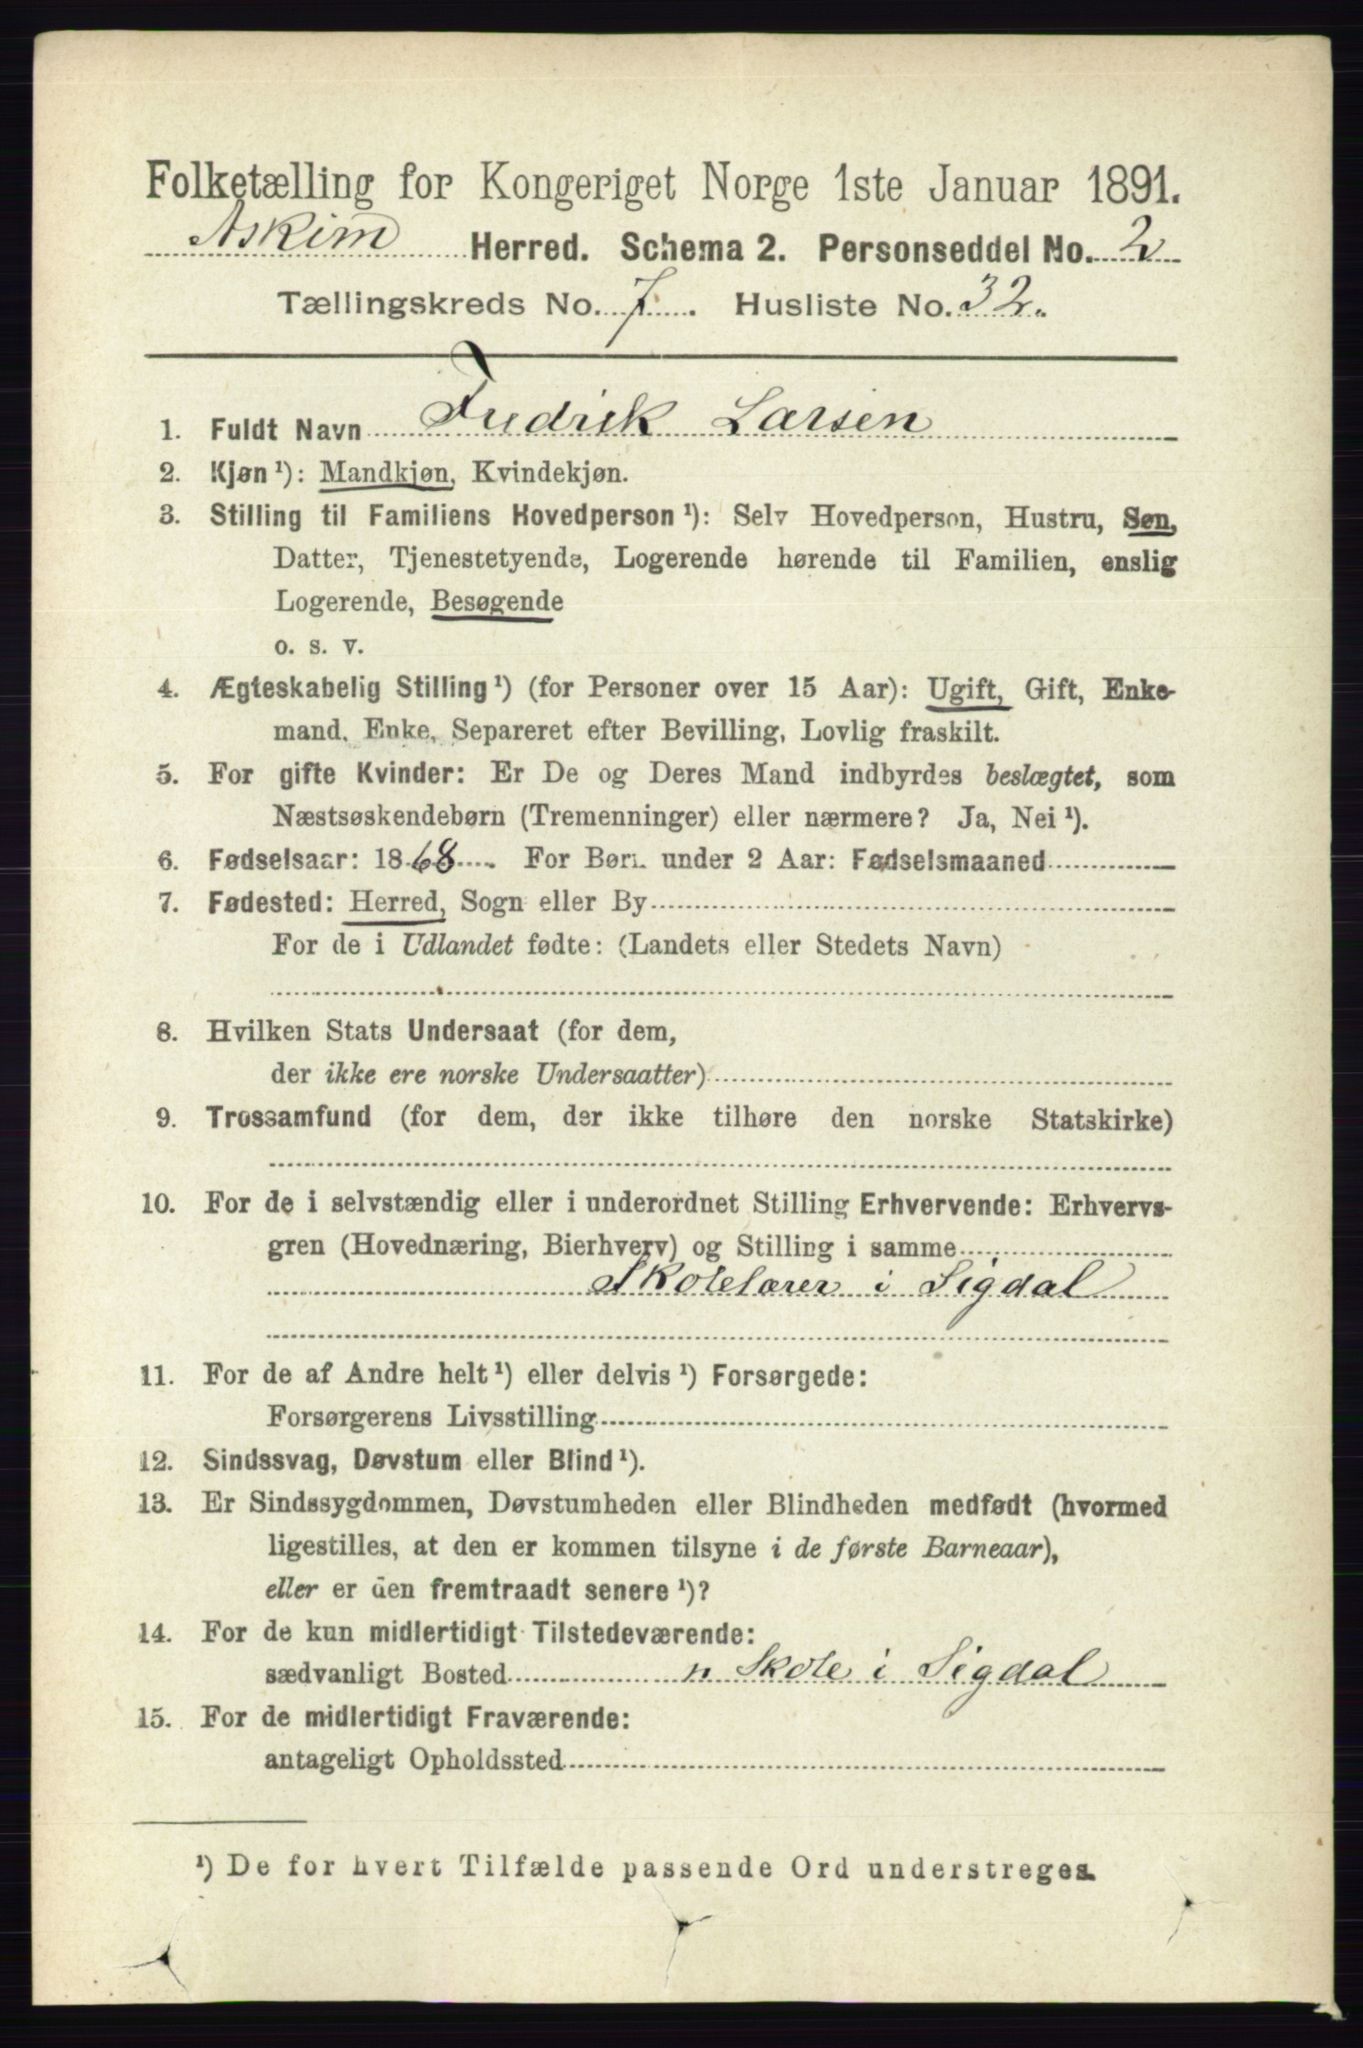 Folketælling for Kongeriget Norge 1ste Januar 1891.
Askim Herred. Schema 2. Personseddel No. 2
Tællingskreds No. 7. Husliste No. 32.
1. Fuldt Navn Fredrik Larsen
2. Kjøn ¹): Mandkjøn, Kvindekjøn.
3. Stilling til Familiens Hovedperson ¹): Selv Hovedperson, Hustru, Søn,
Datter, Tjenestetyende, Logerende hørende til Familien, enslig
Logerende, Besøgende
o. s. v.
4. Ægteskabelig Stilling ¹) (for Personer over 15 Aar): Ugift, Gift, Enke-
mand, Enke, Separeret efter Bevilling, Lovlig fraskilt.
5. For gifte Kvinder: Er De og Deres Mand indbyrdes beslægtet, som
Næstsøskendebørn (Tremenninger) eller nærmere? Ja, Nei ¹).
6. Fødselsaar: 1868. For Børn under 2 Aar: Fødselsmaaned
7. Fødested: Herred, Sogn eller By
For de i Udlandet fødte: (Landets eller Stedets Navn)
8. Hvilken Stats Undersaat (for dem,
der ikke ere norske Undersaatter)
9. Trossamfund (for dem, der ikke tilhøre den norske Statskirke)
10. For de i selvstændig eller i underordnet Stilling Erhvervende: Erhvervs-
gren (Hovednæring, Bierhverv) og Stilling i samme
Skolelærer i Sigdal
11. For de af Andre helt ¹) eller delvis ¹) Forsørgede:
Forsørgerens Livsstilling
12. Sindssvag, Døvstum eller Blind ¹).
13. Er Sindssygdommen, Døvstumheden eller Blindheden medfødt (hvormed
ligestilles, at den er kommen tilsyne i de første Barneaar),
eller er den fremtraadt senere ¹)?
14. For de kun midlertidigt Tilstedeværende:
sædvanligt Bosted n Skole i Sigdal
15. For de midlertidigt Fraværende:
antageligt Opholdssted
¹) De for hvert Tilfælde passende Ord understreges.